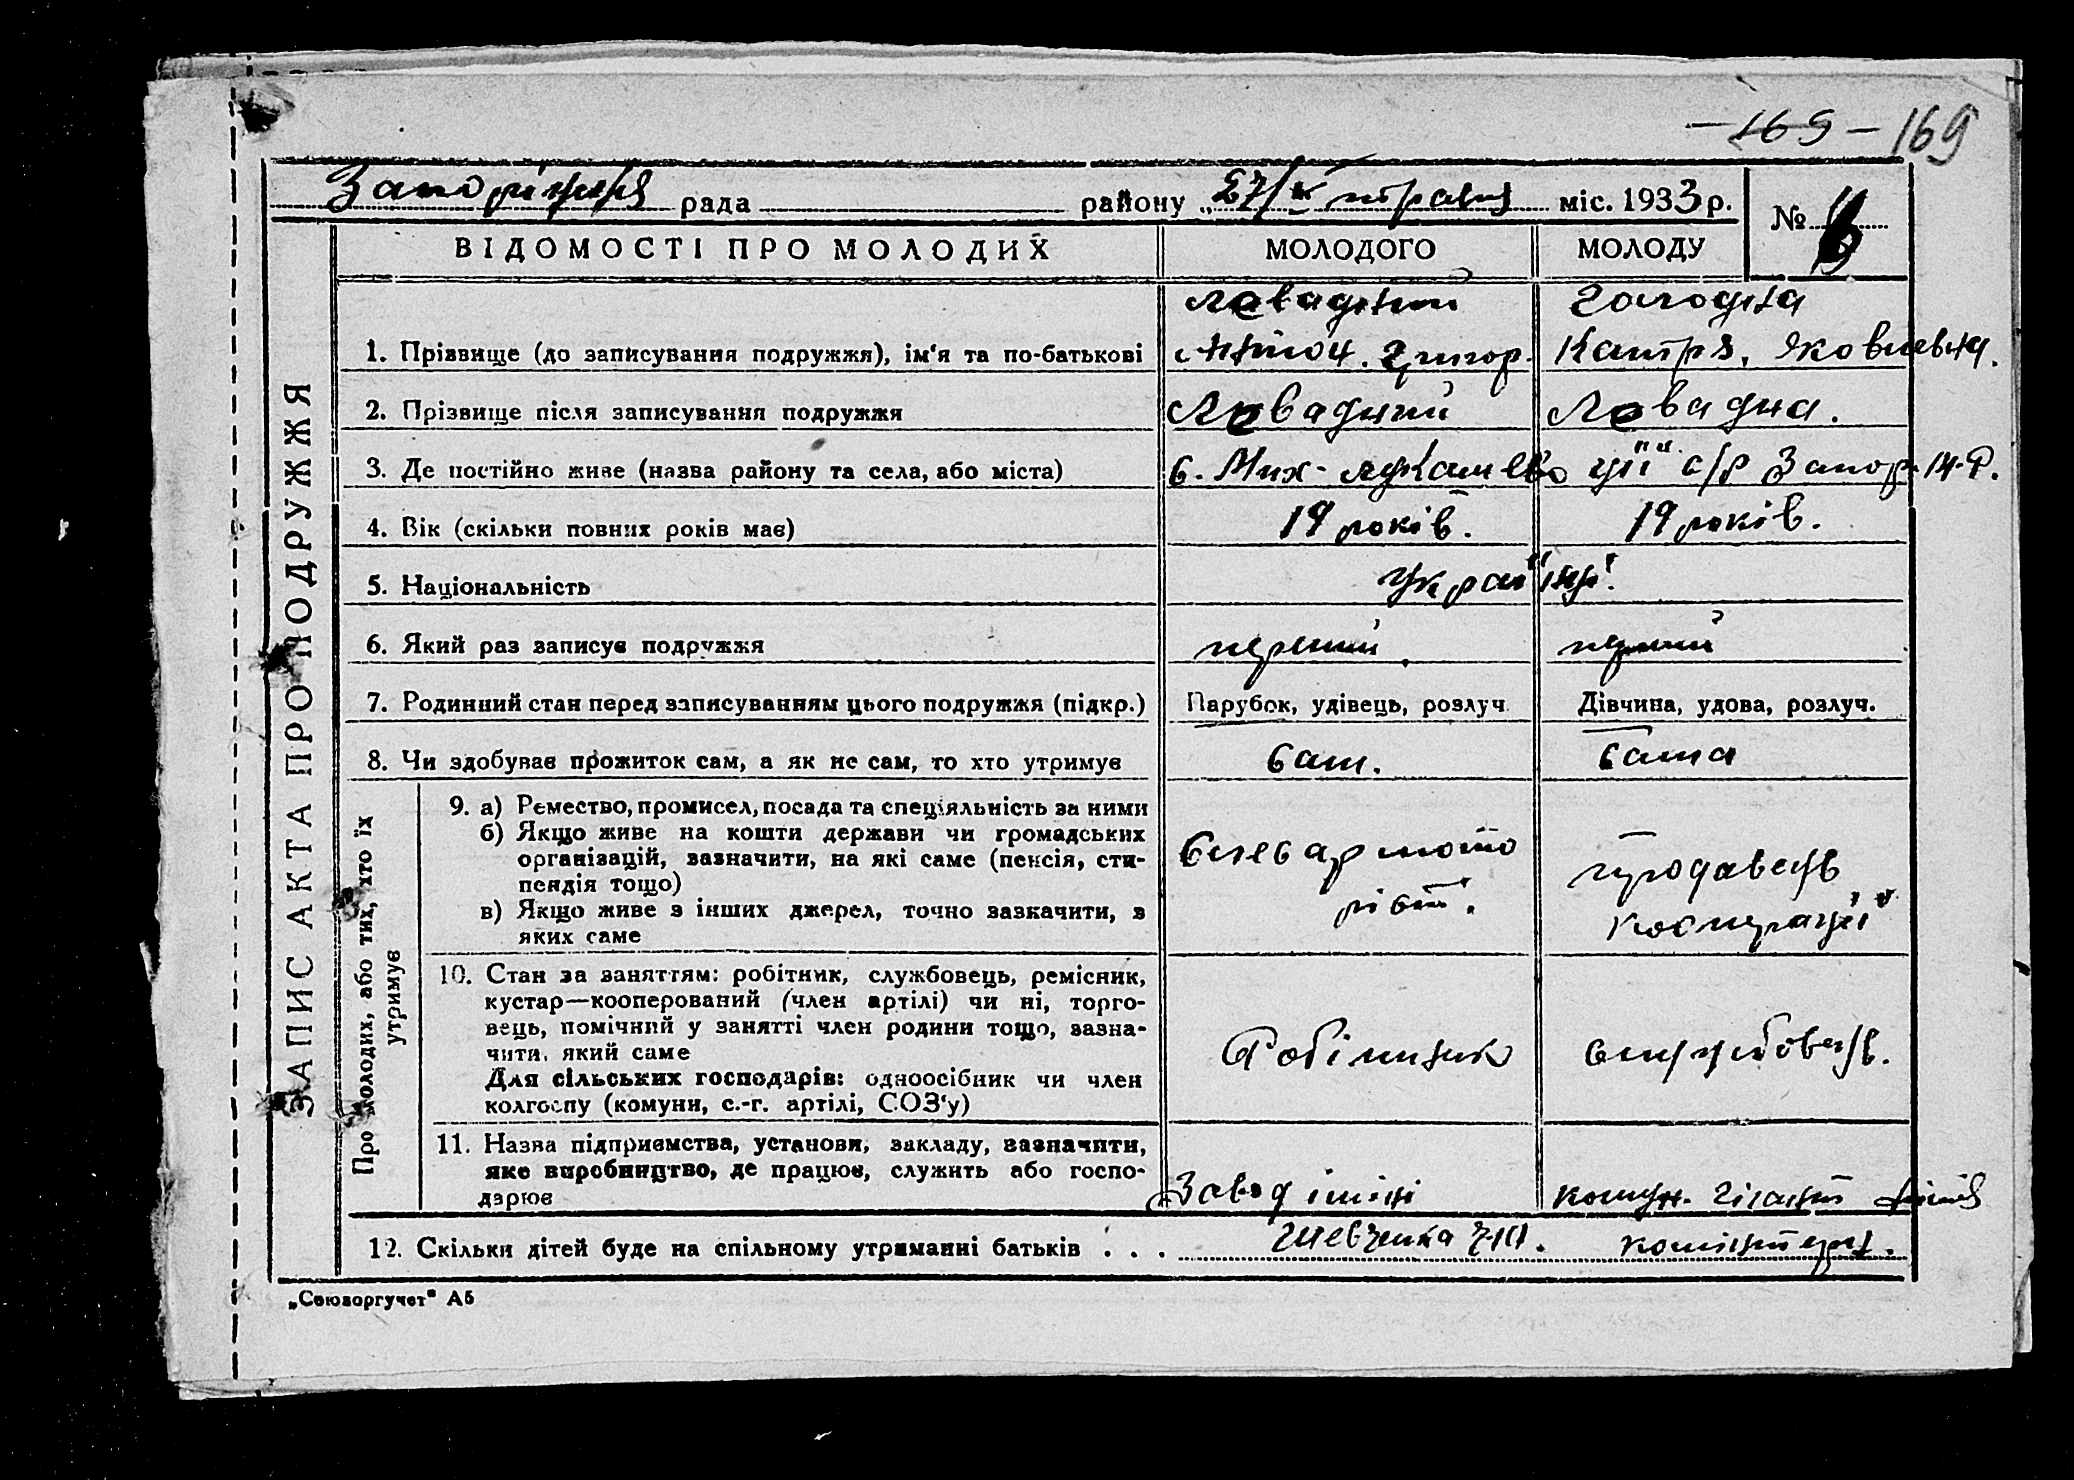 – 169 – 169
Запоріжжя рада району „27/V травня міс. 1933 р.
№
ВІДОМОСТІ ПРО МОЛОДИХ МОЛОДОГО МОЛОДУ
ЗАПИС АКТА ПРО ПОДРУЖЖЯ
Левадний Голодна
1. Прізвище (до записування подружжя), ім'я та по-батькові Антон. Григор. Катря, Яковлевна.
2. Прізвище після записування подружжя Левадний Левадна.
3. Де постійно живе (назва району та села, або міста) с. Мих-Лукашево ції с/р Запор.
4. Вік (скільки повних років має) 19 років. 19 років.
5. Національність Україн.
6. Який раз записує подружжя перший. перший
7. Родинний стан перед записуванням цього подружжя (підкр.) Парубок, удівець, розлуч. Дівчина, удова, розлуч.
8. Чи здобував прожиток сам, а як не сам, то хто утримує сам. сама
Про молодих, або тих, хто їх утримує
9. а) Ремество, промисел, посада та спеціяльність за ними
б) Якщо живе на кошти держави чи громадських
організацій, зазначити, на які саме (пенсія, сти-
пендія тощо)
в) Якщо живе з інших джерел, точно зазначити, з
яких саме
слесар мото
ріст.
продавець
кооперації
10. Стан за заняттям: робітник, службовець, ремісник,
кустар—кооперований (член артілі) чи ні, торго-
вець, помічний у занятті член родини тощо, зазна-
чити, який саме
Для сільських господарів: одноосібник чи член
колгоспу (комуни, с.-г. артілі, СОЗ'у)
Робітник службовець.
11. Назва підприємства, установи, закладу, зазначити,
яке виробництво, де працює, служить або госпо-
дарює
Завод імені
Шевченка
12. Скільки дітей буде на спільному утриманні батьків . . .
„Союзоргучет" А5